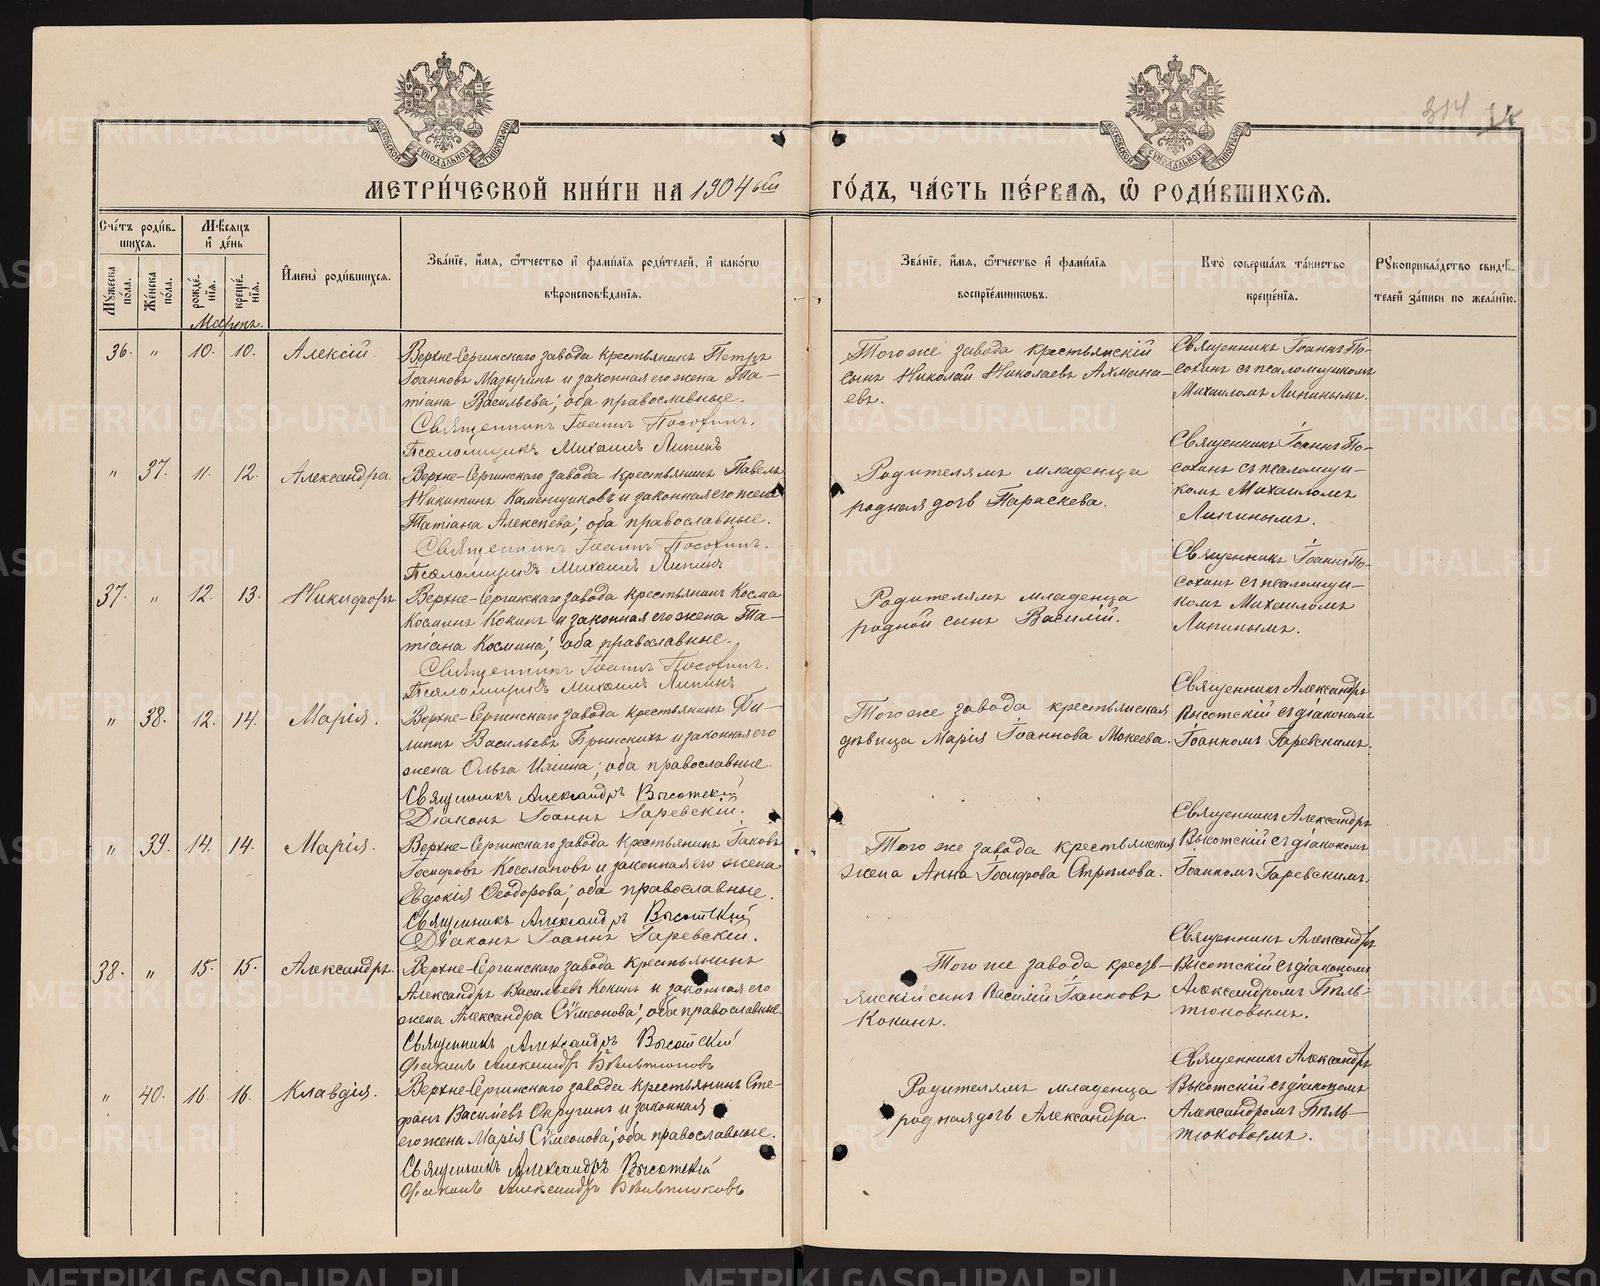 314 14
МОСКОВСКОЙ СѴНОДАЛЬНОЙ ТИПОГРАФІИ
МОСКОВСКОЙ СѴНОДАЛЬНОЙ ТИПОГРАФІИ
МЕТРИ́ЧЕСКОЙ КНИ́ГИ НА 1904 ый ГО́ДЪ, ЧА́СТЬ ПЕ́РВАЯ, Ѡ҆ РОДИ́ВШИХСЯ.
Сче́тъ роди́вшихся.
Мѣ́сяцъ и҆ де́нь
И҆мена̀ роди́вшихся.
Зва́нїе, и҆́мя, ѻ҆́тчество и҆ фами́лїя роди́телей, и҆ како́гѡ вѣроисповѣ́данїя.
Зва́нїе, и҆́мя, ѻ҆́тчество и҆ фами́лїя воспрїе́мникѡвъ.
Кто̀ соверша́лъ та́инство креще́нїя.
Рꙋкоприкла́дство свидѣ́телей за́писи по жела́нїю.
Мꙋ́жеска по́ла.
Же́нска по́ла.
рожде́нїя.
креще́нїя.
Мартъ.
36. " 10. 10. Алексій.
Верхне-Сергинскаго завода крестьянинъ Петръ
Іоанновъ Мазыринъ и законная его жена Та-
тіана Васильева; оба православные.
Священникъ Іоаннъ Посохинъ.
Псаломщикъ Михаилъ Липинъ
Того же завода крестьянскій
сынъ Николай Николаевъ Ахмана-
евъ.
Священникъ Іоаннъ По-
сохинъ съ псаломщикомъ
Михаиломъ Липинымъ.
" 37. 11. 12. Александра.
Верхне-Сергинскаго завода крестьянинъ Павелъ
Никитинъ Каменщиковъ и законная его жена
Татіана Алексѣева; оба православные.
Священникъ Іоаннъ Посохинъ.
Псаломщикъ Михаилъ Липинъ
Родителямъ младенца
родная дочь Параскева.
Священникъ Іоаннъ По-
сохинъ съ псаломщи-
комъ Михаиломъ
Липинымъ.
37. " 12. 13. Никифоръ.
Верхне-Сергинскаго завода крестьянинъ Косма
Косминъ Кокинъ и законная его жена Та-
тіана Космина; оба православные.
Священникъ Іоаннъ Посохинъ.
Псаломщикъ Михаилъ Липинъ
Родителямъ младенца
родной сынъ Василій.
Священникъ Іоаннъ По-
сохинъ съ псаломщи-
комъ Михаиломъ
Липинымъ.
" 38. 12. 14. Марія.
Верхне-Сергинскаго завода крестьянинъ Фи-
липпъ Васильевъ Брынскихъ и законная его
жена Ольга Иліина; оба православные.
Священникъ Александръ Высотскій
Діаконъ Іоаннъ Гаревскій.
Того же завода крестьянская
дѣвица Марія Іоаннова Мокеева.
Священникъ Александръ
Высотскій съ діакономъ
Іоанномъ Гаревскимъ.
" 39. 14. 14. Марія.
Верхне-Сергинскаго завода крестьянинъ Іаковъ
Іосифовъ Косолаповъ и законная его жена
Евдокія Ѳеодорова; оба православные.
Священникъ Александръ Высотскій
Діаконъ Іоаннъ Гаревскій.
Того же завода крестьянская
жена Анна Іосифова Стрѣлова.
Священникъ Александръ
Высотскій съ діакономъ
Іоанномъ Гаревскимъ.
38. " 15. 15. Александръ.
Верхне-Сергинскаго завода крестьянинъ
Александръ Васильевъ Кокинъ и законная его
жена Александра Сѵмеонова; оба православные.
Священникъ Александръ Высотскій
Діаконъ Александръ Бѣльтюковъ
Того же завода кресть-
янскій сынъ Василій Іоанновъ
Кокинъ.
Священникъ Александръ
Высотскій съ діакономъ
Александромъ Бѣль-
тюковымъ.
" 40. 16. 16. Клавдія.
Верхне-Сергинскаго завода крестьянинъ Сте-
фанъ Василіевъ Окручинъ и законная
его жена Марія Сѵмеонова; оба православные.
Священникъ Александръ Высотскій
Діаконъ Александръ Бѣльтюковъ
Родителямъ младенца
родная дочь Александра.
Священникъ Александръ
Высотскій съ діакономъ
Александромъ Бѣль-
тюковымъ.
METRIKI.GASO-URAL.RU